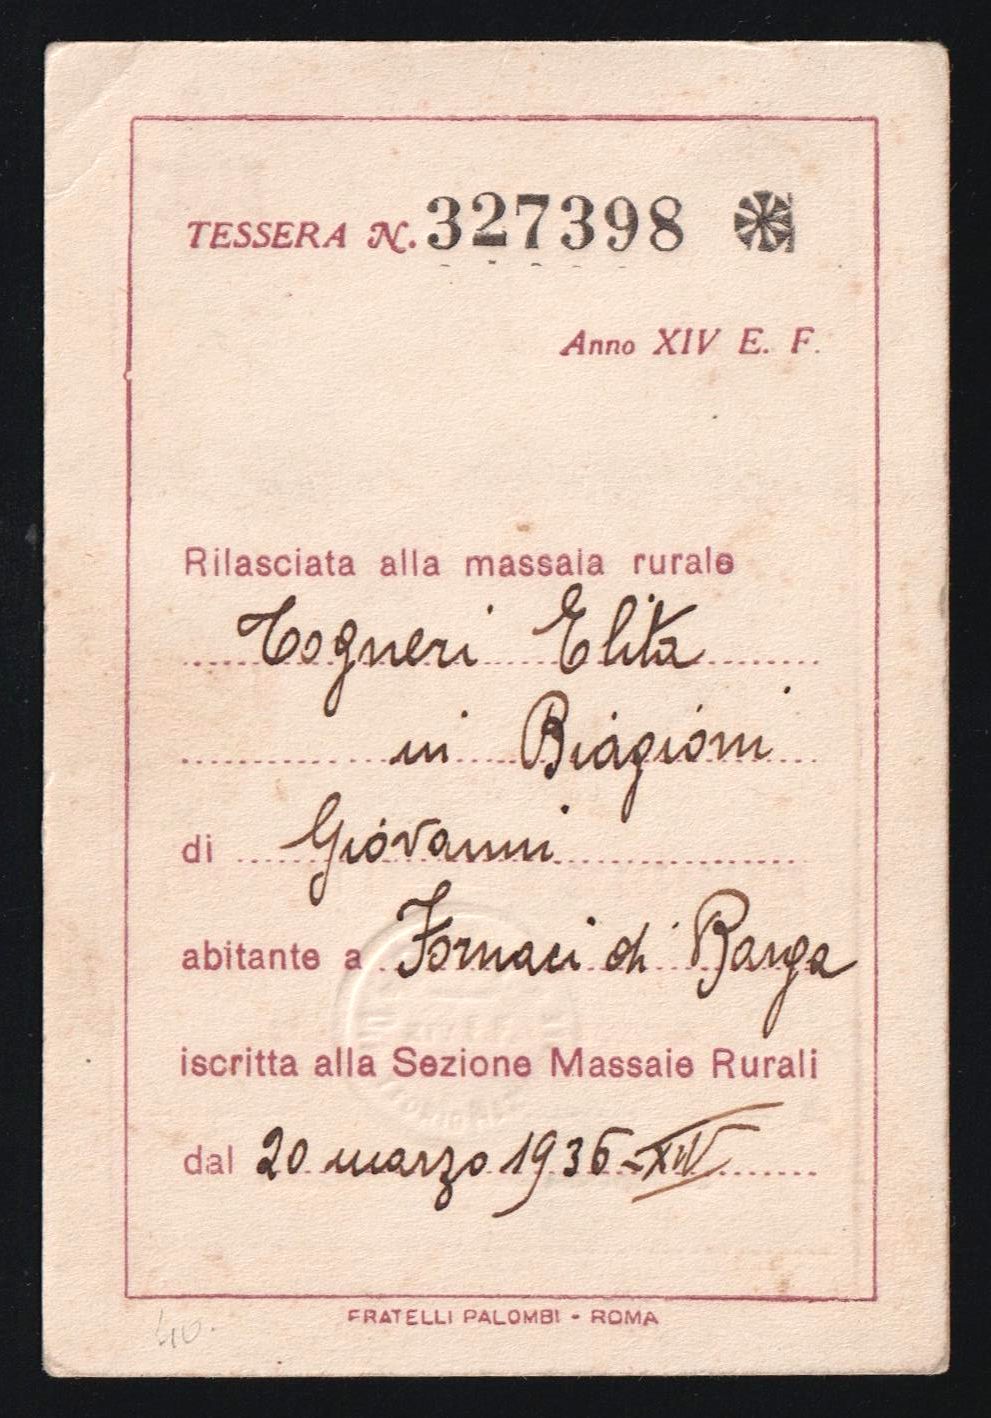 TESSERA N. 327398
Anno XIV E. F.
Rilasciata alla massaia rurale
Togneri Elita
in Biagioni
di Giovanni
abitante a Fornaci di Barga
iscritta alla Sezione Massaie Rurali
dal 20 marzo 1936-XIV
FRATELLI PALOMBI - ROMA
40.